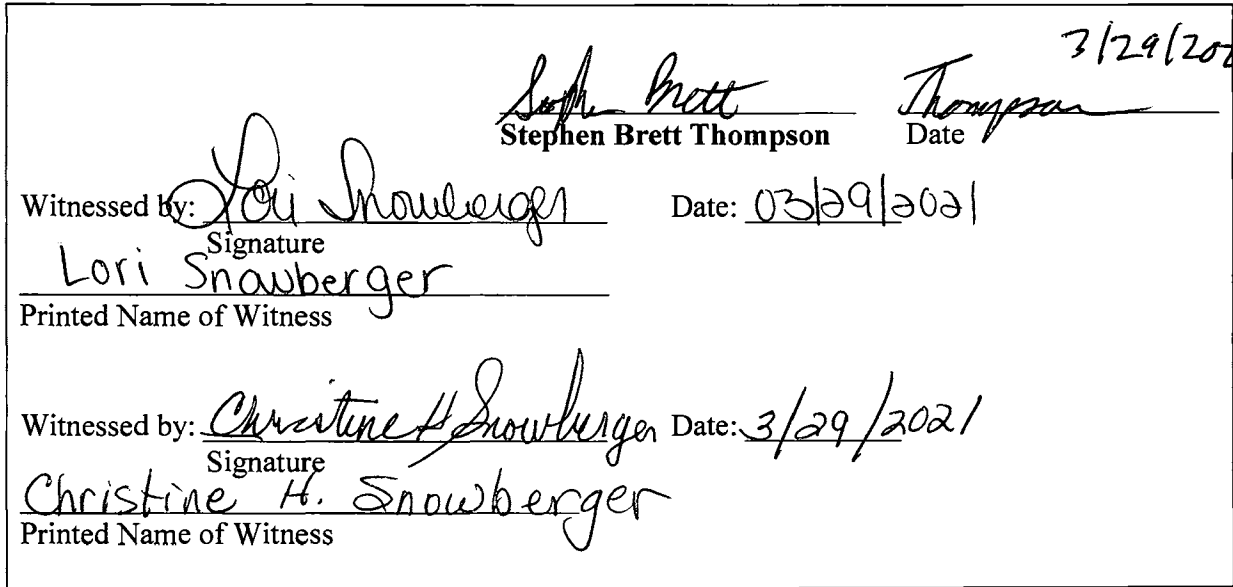 3/29/202
Stephen Brett Thompson
Stephen Brett Thompson Date
Witnessed by: Lori Snowberger Date: 03/29/2021
Signature
Lori Snowberger
Printed Name of Witness
Witnessed by: Christine H Snowberger Date: 3/29/2021
Signature
Christine H. Snowberger
Printed Name of Witness